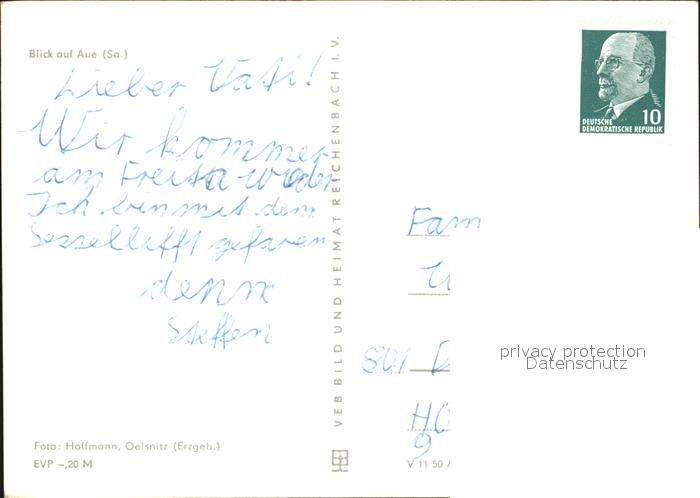 Blick auf Aue (Sa.)
Lieber Vati!
Wir kommen
am Freita wieder
Ich bin mit dem
Sessellifft gefaren
denn
Steffen
Foto: Hoffmann, Oelsnitz (Erzgeb.)
EVP –,20 M
VEB BILD UND HEIMAT REICHENBACH I. V.
10
DEUTSCHE
DEMOKRATISCHE REPUBLIK
Fam
801 D
9
V 11 50
privacy protection
Datenschutz